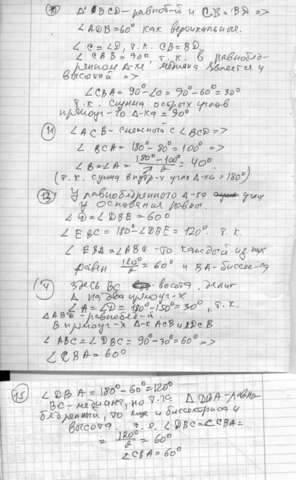 Δ BCD - равноб-й и CB = BD =>
∠ADB = 60° как вертикальные.
∠C = ∠D, т.к. CB = BD.
∠CAB = 90° т.к. в равнобед-
ренном Δ-ке медиана является и
высотой =>
∠CBA = 90° - ∠D = 90° - 60° = 30°
т.к. сумма острых углов
прямоуг-го Δ-ка = 90°
∠ACB - смежный с ∠BCD =>
∠BCA = 180° - 80° = 100° =>
∠B = ∠A = (180° - 100°)/2 = 40°
(т.к. сумма внутр-х угл Δ-ка = 180°)
12 У равнобедренного Δ-ка углы
у основания равны.
∠D = ∠DBE = 60°
∠EBC = 180° - ∠DBE = 120°, т.к.
∠EBA = ∠ABC - то каждый из них
равен 120°/2 = 60° и BA - биссек-са
Здесь BC - высота, делит
Δ на два прямоуг-х
∠A = ∠D = 180° - 150° = 30°, т.к.
ΔABD - равнобед-й.
В прямоуг-х Δ-к ACB и DCB
∠ABC = ∠DBC = 90° - 30° = 60° =>
∠CBA = 60°
∠DBA = 180° - 60° = 120°
BC - медиана, но т.к. Δ DBA - равно-
бедренный, то еще и биссектриса и
высота, т.е. ∠DBC = ∠CBA =
= 180°/2 = 60°
∠CBA = 60°